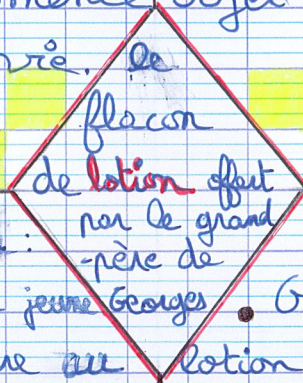 vie. le
flacon
de lotion offert
par le grand
-père de
jeune Georges
au lotion